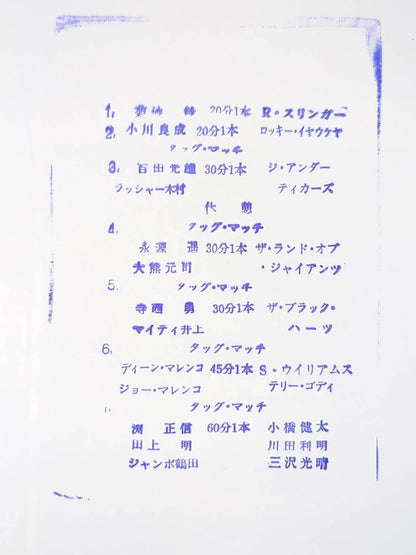 1. 菊地 毅 20分1本 R・スリンガー
2. 小川良成 20分1本 ロッキー・イヤウケヤ
タッグ・マッチ
3. 百田光雄 30分1本 ジ・アンダー
ラッシャー木村 ティカーズ
休憩
4. タッグ・マッチ
永源 遙 30分1本 ザ・ランド・オブ
大熊元司 ・ジャイアンツ
5. タッグ・マッチ
寺西 勇 30分1本 ザ・ブラック・
マイティ井上 ハーツ
6. タッグ・マッチ
ディーン・マレンコ 45分1本 S・ウイリアムス
ジョー・マレンコ テリー・ゴディ
タッグ・マッチ
渕 正信 60分1本 小橋健太
田上 明 川田利明
ジャンボ鶴田 三沢光晴